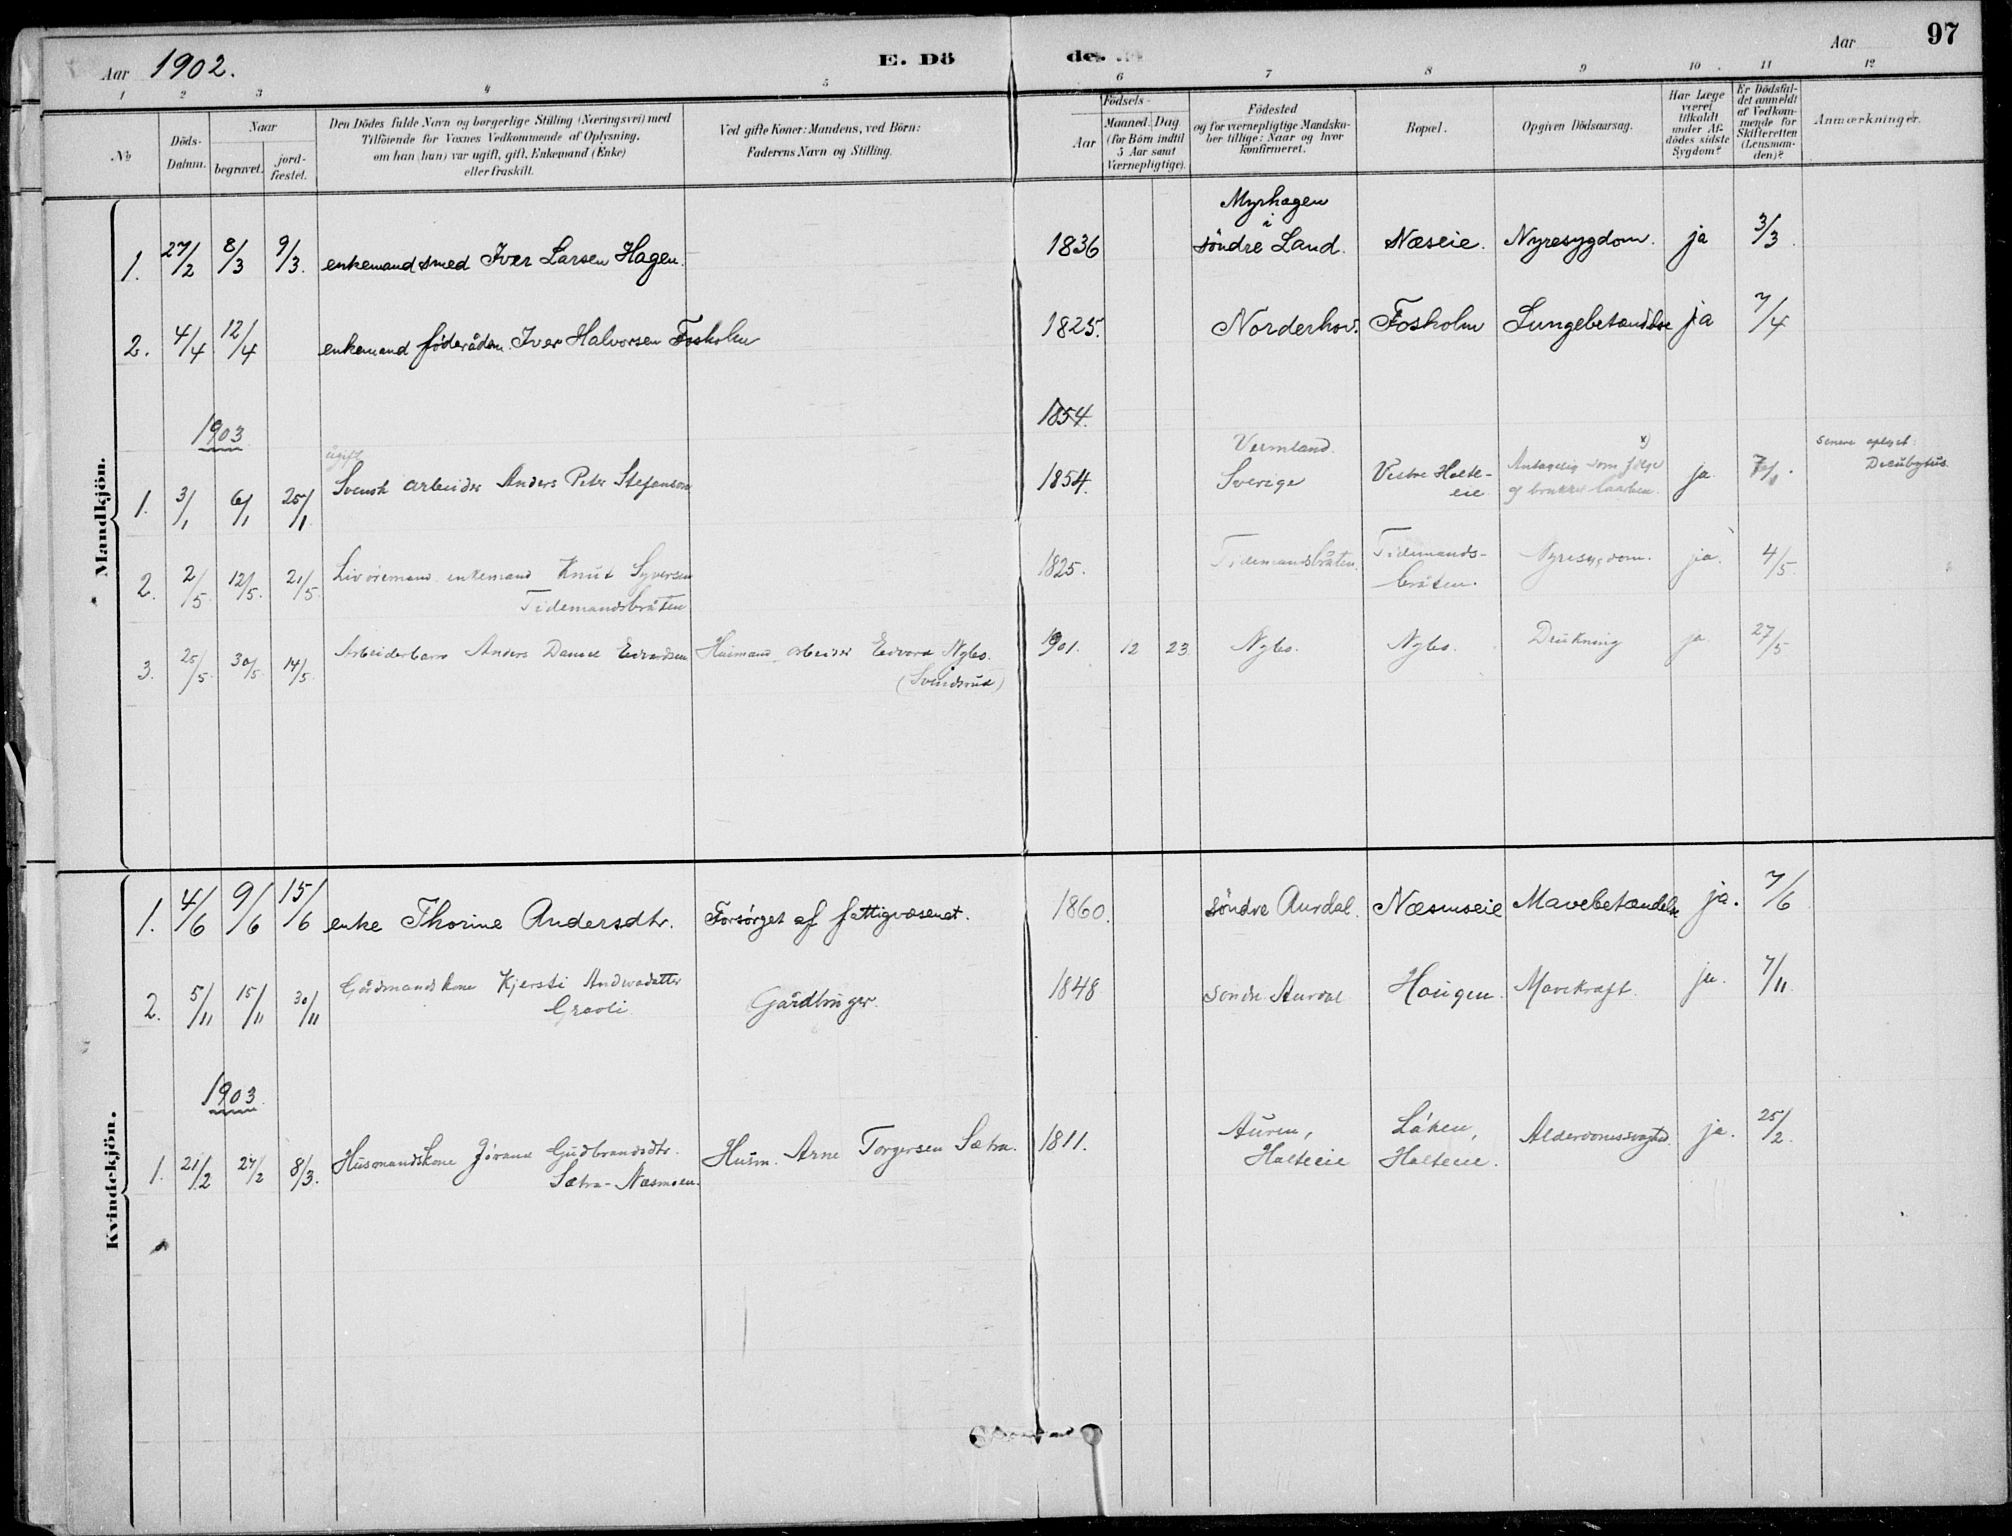 Aar 1902.
E. Dö
de.
Aar
97
1 2 3 4 5 6 7 8 9 10 11 12
No
Döds-
Datum.
Naar
begravet.
jord-
fæstet.
Den Dödes fulde Navn og borgerlige Stilling (Næringsvei) med
Tilföiende for Voxnes Vedkommende af Oplysning,
om han (hun) var ugift, gift, Enkemand (Enke)
eller fraskilt.
Ved gifte Koner: Mandens, ved Börn:
Faderens Navn og Stilling.
Födsels-
Aar
Maaned. Dag
(for Börn indtil
5 Aar samt
Værnepligtige).
Födested
og for værnepligtige Mandska-
ber tillige: Naar og hvor
konfirmeret.
Bopæl.
Opgiven Dödsaarsag.
Har Læge
været
tilkaldt
under Af-
dödes sidste
Sygdom?
Er Dödsfal-
det anmeldt
af Vedkom-
mende for
Skifteretten
(Lensman-
den)?
Anmærkninger.
Mandkjön.
Myrhagen
i
1. 27/2 8/3 9/3. enkemand smed Iver Larsen Hagen. 1836 söndre Land. Næseie. Nyresygdom. ja 3/3.
2. 4/4 12/4 enkemand föderådsm. Iver Halvorsen Fosholm 1825. Norderhov. Fosholm Lungebetændelse ja 7/4
1903
1854.
ugift
Vermland.
x)
senere oplyst:
Decubytus
1. 3/1 6/1 25/1 Svensk arbeider Anders Peter Stefanson 1854. Sverige Vestre Halte-
eie
Antagelig som følge
af brukket laarben.
ja 7/1.
2. 2/5 12/5. 21/5. enkemand Knut Syversen
Tidemandsbråten
1825. Tidemandsbråten. Tidemands-
bråten.
Nyresygdom. ja. 4/5.
3. 25/5 30/5 14/5. Arbeiderbarn Anders Daniel Edvardsen Husmand arbeider Edvard Nybo.
(Svendsrud)
1901. 12 23 Nybo. Nybo. Drukning ja. 27/5
Kvindekjön.
1. 4/6 9/6 15/6 enke Thorine Andersdtr. Forsörget af fattigvæsenet. 1860. söndre Aurdal. Næsmseie Mavebetændelse ja. 7/6
2. 5/11 15/11 30/11 Gårdmandskone Kjersti Andersdatter
Gravli
Gårdbruger. 1848 söndre Aurdal Haugen. Mavekræft. ja. 7/11.
1903
1. 21/2 27/2 8/3. Husmandskone Jörand Gudbrandsdtr.
Sætra-Næsmoen.
Husm. Arne Torgersen Sætra. 1811. Auren,
Halteeie
Låken,
Halteeie.
Alderdomssvaghed. ja. 25/2.